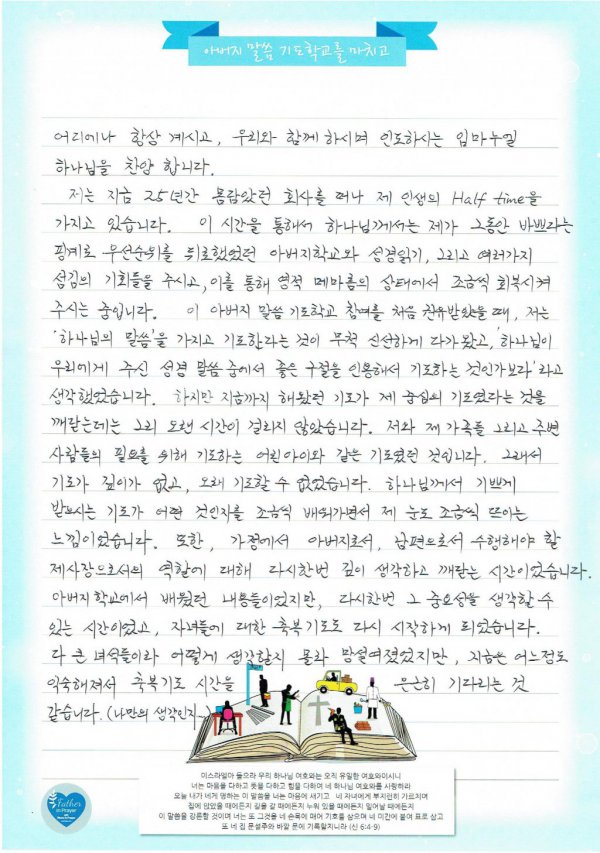 아버지 말씀 기도학교를 마치고
어디에나 항상 계시고, 우리와 함께 하시며 인도하시는 임마누엘
하나님을 찬양 합니다.
저는 지금 25년간 몸담았던 회사를 떠나 제 인생의 Half time을
가지고 있습니다. 이 시간을 통해서 하나님께서는 제가 그동안 바쁘다는
핑계로 우선순위를 뒤로했었던 아버지학교와 성경읽기, 그리고 여러가지
섬김의 기회들을 주시고, 이를 통해 영적 메마름의 상태에서 조금씩 회복시켜
주시는 중입니다. 이 아버지 말씀 기도학교 참여를 처음 권유받았을 때, 저는
'하나님의 말씀'을 가지고 기도한다라는 것이 무척 신선하게 다가왔고, '하나님이
우리에게 주신 성경 말씀 중에서 좋은 구절을 인용해서 기도하는 것인가보다'라고
생각했었습니다. 하지만 지금까지 해왔던 기도가 제 중심의 기도였다는 것을
깨닫는데는 그리 오랜 시간이 걸리지 않았습니다. 저와 제 가족들 그리고 주변
사람들의 필요를 위해 기도하는 어린아이와 같은 기도였던 것입니다. 그래서
기도가 깊이가 없고, 오래 기도할 수 없었습니다. 하나님께서 기쁘게
받으시는 기도가 어떤 것인지를 조금씩 배워가면서 제 눈도 조금씩 뜨이는
느낌이었습니다. 또한, 가정에서 아버지로서, 남편으로서 수행해야 할
제사장으로서의 역할에 대해 다시한번 깊이 생각하고 깨닫는 시간이었습니다.
아버지학교에서 배웠던 내용들이었지만, 다시한번 그 중요성을 생각할 수
있는 시간이었고, 자녀들에 대한 축복기도도 다시 시작하게 되었습니다.
다 큰 녀석들이라 어떻게 생각할지 몰라 망설여졌었지만, 지금은 어느정도
익숙해져서 축복기도 시간을 은근히 기다리는 것
같습니다. (나만의 생각인지...)
이스라엘아 들으라 우리 하나님 여호와는 오직 유일한 여호와이시니
너는 마음을 다하고 뜻을 다하고 힘을 다하여 네 하나님 여호와를 사랑하라
오늘 내가 네게 명하는 이 말씀을 너는 마음에 새기고 네 자녀에게 부지런히 가르치며
집에 앉았을 때에든지 길을 갈 때에든지 누워 있을 때에든지 일어날 때에든지
이 말씀을 강론할 것이며 너는 또 그것을 네 손목에 매어 기호를 삼으며 네 미간에 붙여 표로 삼고
또 네 집 문설주와 바깥 문에 기록할지니라 (신 6:4-9)
Father
in Prayer